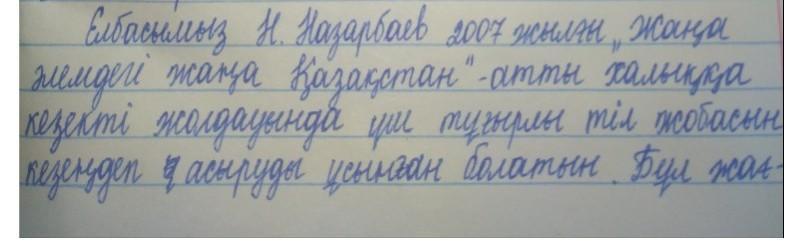 Елбасымыз Н. Назарбаев 2007 жылғы „Жаңа
әлемдегі жаңа Қазақстан“-атты халыққа
кезекті жолдауында үш тұғырлы тіл жобасын
кезеңдеп асыруды ұсынған болатын. Бұл жағ-